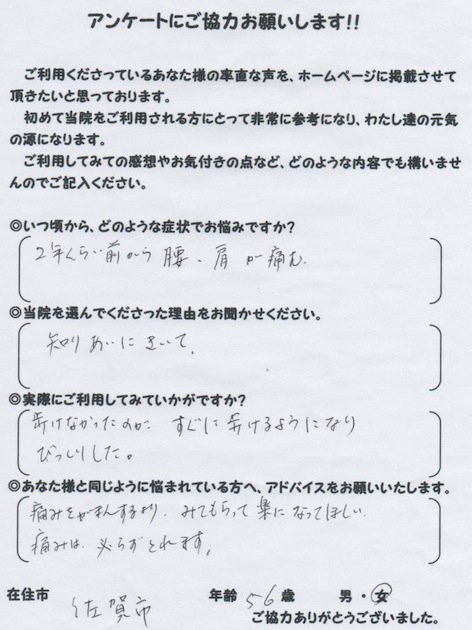 アンケートにご協力お願いします!!
ご利用くださっているあなた様の率直な声を、ホームページに掲載させて
頂きたいと思っております。
初めて当院をご利用される方にとって非常に参考になり、わたし達の元気
の源になります。
ご利用してみての感想やお気付きの点など、どのような内容でも構いませ
んのでご記入ください。
◎いつ頃から、どのような症状でお悩みですか?
2年くらい前から 腰、肩 が 痛む.
◎当院を選んでくださった理由をお聞かせください。
知り あいに きいて.
◎実際にご利用してみていかがですか?
歩けなかったのが、すぐに歩けるようになり
びっくりした。
◎あなた様と同じように悩まれている方へ、アドバイスをお願いいたします。
痛みをがまんするより、みてもらって 楽に なってほしい.
痛みは 必らずとれます。
在住市 佐賀市 年齢 56 歳 男・女
ご協力ありがとうございました。